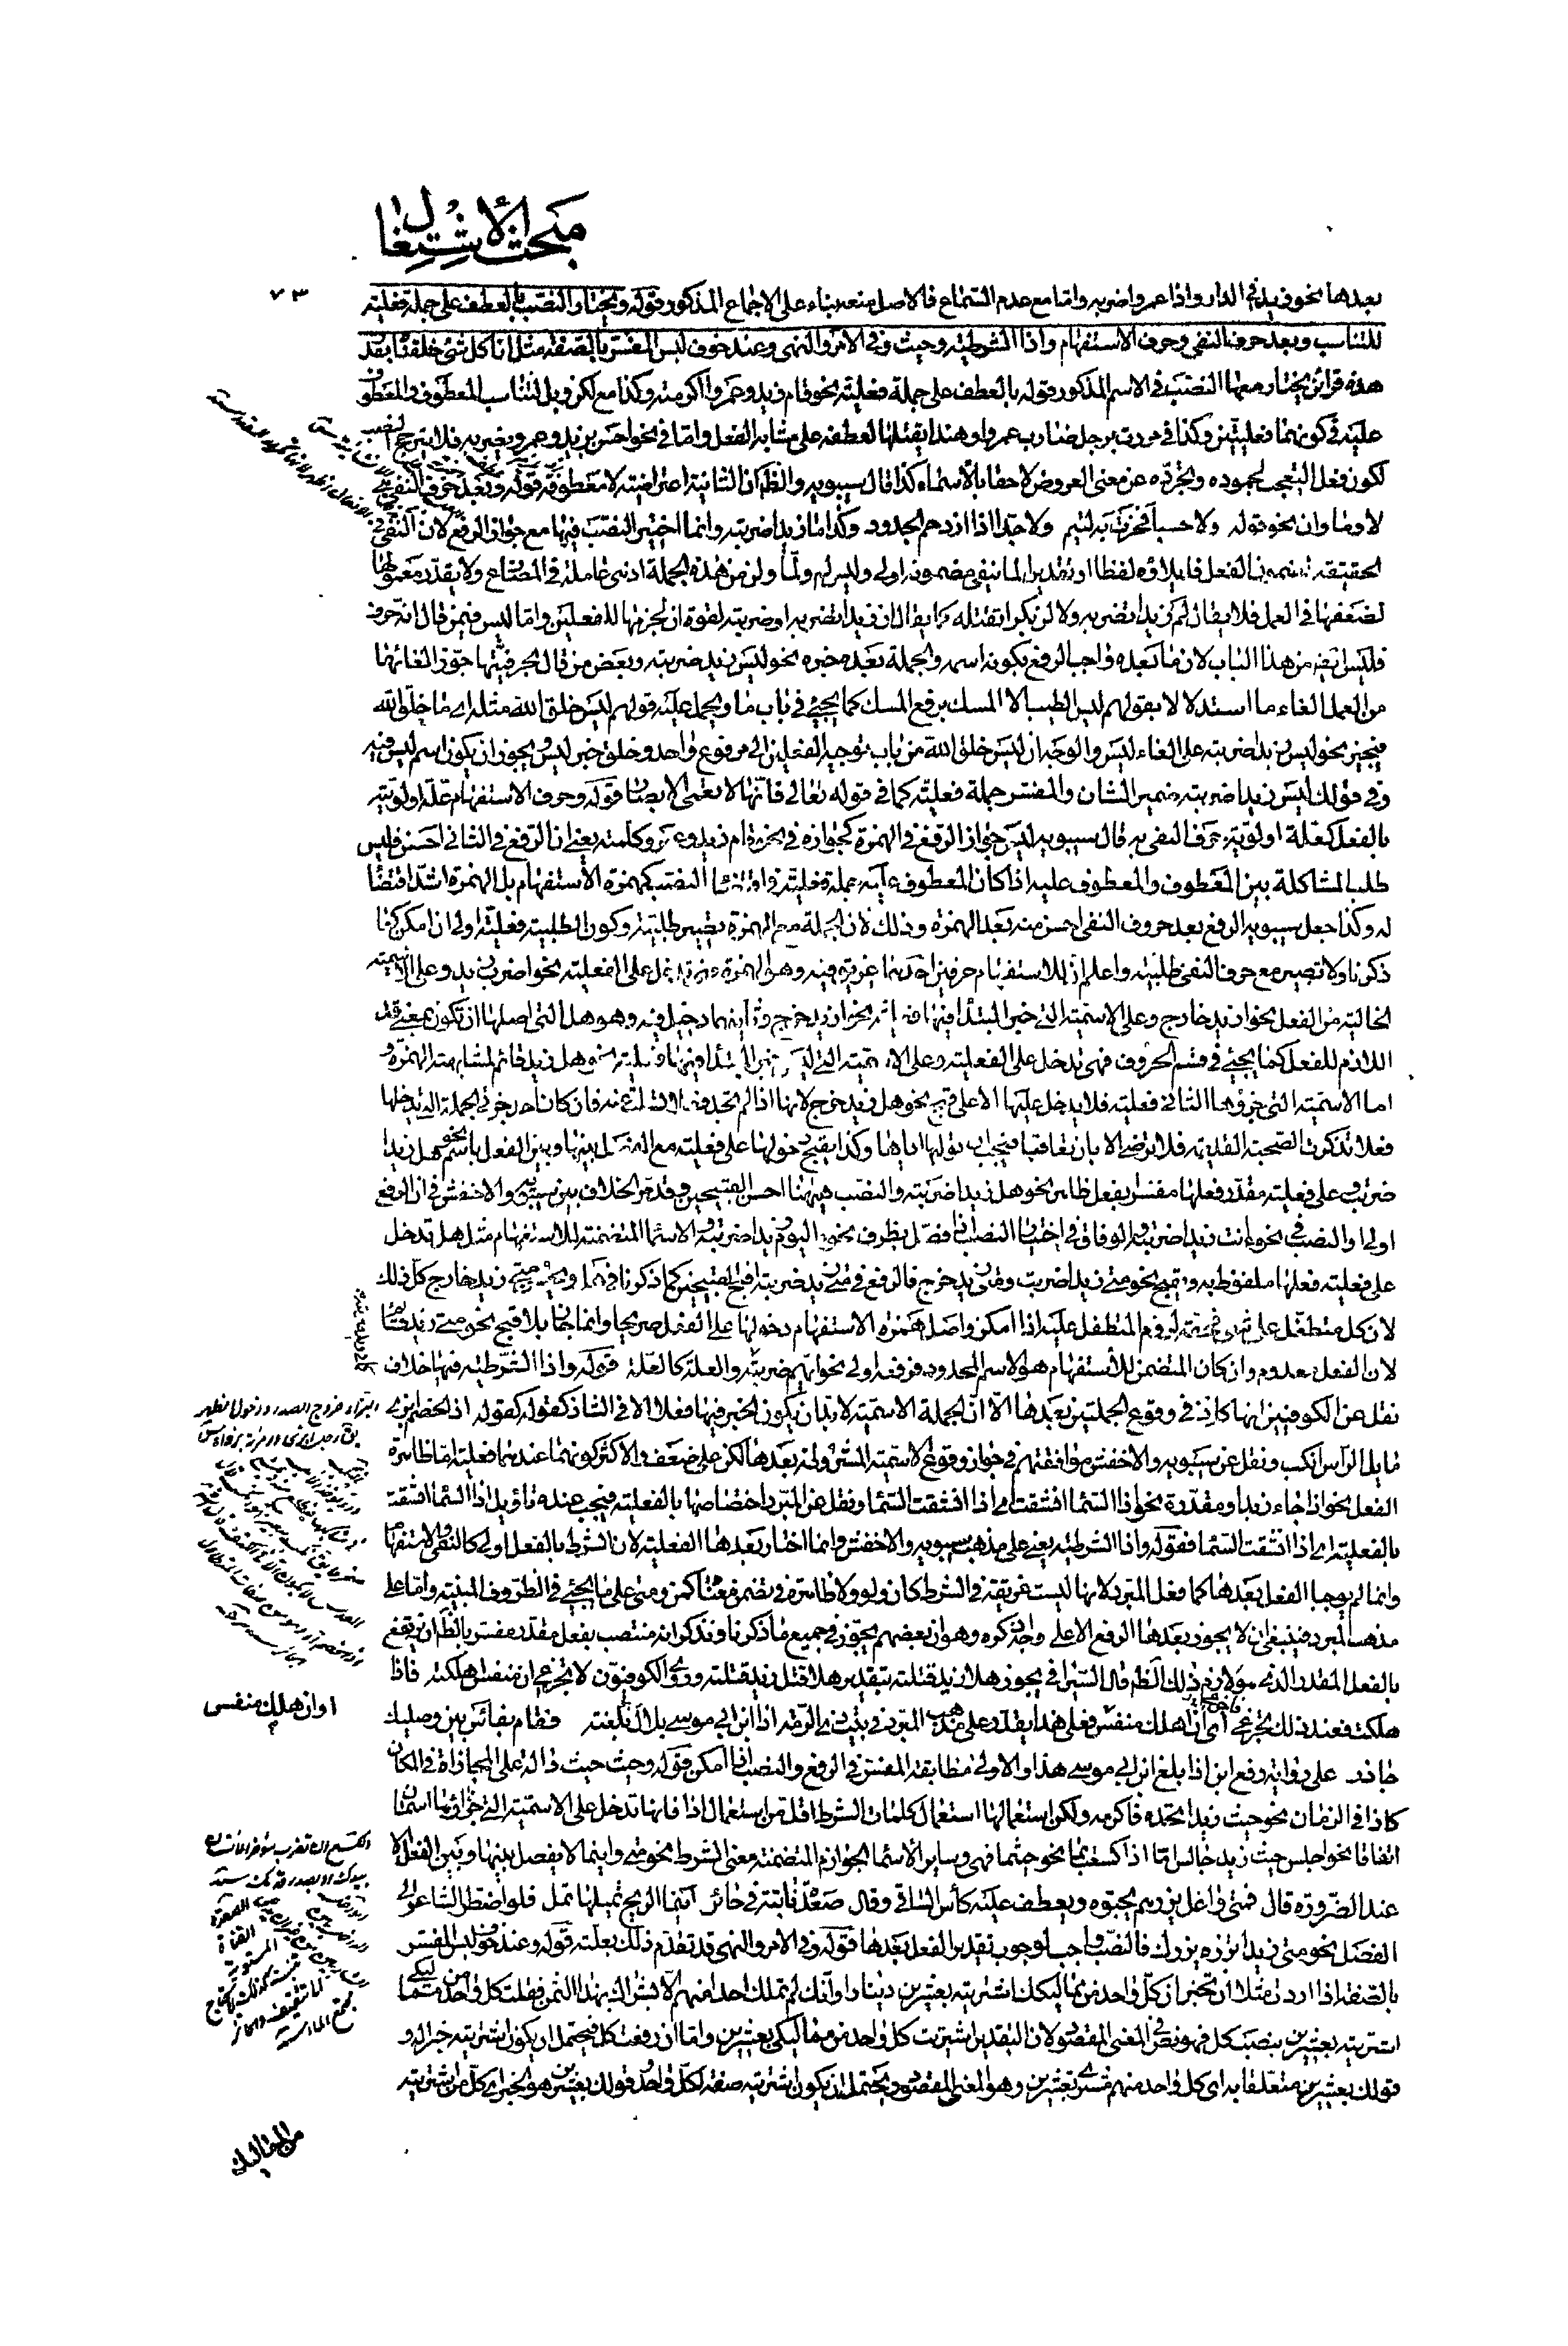 مبحث الاشتغال
٧٣
بعدها نحو زيد في الدار واذا عمرو اضربه واما مع عدم السماع فالاصل منعه بناء على الاجماع المذكور قوله ويختار النصب بالعطف على جملة فعلية
للتناسب وبعد حرف النفي وحرف الاستفهام واذا الشرطية وحيث وفي الامر والنهي وعند خوف لبس المفسر بالصفة مثل انا كل شئ خلقناه بقدر
هذه قرائن يختار معها النصب في الاسم المذكور قوله بالعطف على جملة فعلية نحو قام زيد وعمروا اكرمته وكذا مع لكن وبل لتناسب المعطوف والمعطوف
عليه في كونهما فعليتين وكذا في مررت برجل ضارب عمروا وهندا يقتلها لعطفه على مشابه الفعل واما في نحو احسن بزيد وعمرو يضربه فلا يترجح النصب
لكون فعل التعجب لجموده وتجرده عن معنى العروض لاحقا بالاسماء كذا قال سيبويه والظ ان الثانية اعتراضية لا معطوفة قوله وبعد حرف النفي
لا وما وان نحو قوله ولا حسبا فخرت به لتيم ولا جدا اذا ازدحم الجدود وكذا ما زيدا ضربته وانما اختير النصب فيها مع جواز الرفع لان النفي في
الحقيقة لمضمون الفعل فايلاؤه لفظا او تقديرا لما ينفي مضمونه اولى وليس لم ولما ولن من هذه الجملة اذ هي عاملة في المضارع ولا يقدر معمولها
لضعفها في العمل فلا يقال لم زيدا تضربه ولا لن بكرا تقتله كما يقال ان زيدا تضربه او ضربته لقوة ان لجزمها للفعلين واما ليس فيمن قال انه حرف
فليس ايضا من هذا الباب لان ما بعده واجب الرفع بكونه اسمه والجملة بعده خبره نحو ليس زيد ضربته وبعض من قال بحرفيتها جوز الغائها
من العمل الغاء ما استدلالا بقولهم ليس الطيب الا المسك برفع المسك كما يجيء في باب ما ويحمل عليه قولهم ليس خلق الله مثله اي ما خلق الله
فيجيز نحو ليس زيدا ضربته على الغاء ليس والوجه ان ليس خلق الله من باب توجيه الفعلين الى مرفوع واحد وخلق خبر ليس ويجوز ان يكون اسم ليس فيه
وفي قولك ليس زيدا ضربته ضمير الشان والمفسر جملة فعلية كما في قوله تعالى فانها لا تعمى الابصار قوله وحرف الاستفهام علة اولويته
بالفعل كعلة اولوية حرف النفي به قال سيبويه ليس جواز الرفع في الهمزة كجوازه في نحو قام زيد وعمرو كلمته يعني ان الرفع في الثاني احسن فليس
طلب المشاكلة بين المعطوف والمعطوف عليه اذا كان المعطوف عليه جملة فعلية في اقتضاء النصب كهمزة الاستفهام بل الهمزة اشد اقتضاء
له وكذا جعل سيبويه الرفع بعد حروف النفي احسن منه بعد الهمزة وذلك لان الجملة مع الهمزة تصير طلبية وكون الطلبية فعلية اولى ان امكن كما
ذكرنا ولا تصير مع حرف النفي طلبية واعلم ان للاستفهام حرفين احدهما عريق فيه وهو الهمزة فهي تدخل على الفعلية نحو اضرب زيد وعلى الاسمية
الخالية من الفعل نحو ازيد خارج وعلى الاسمية التي خبر المبتدأ فيها فعلية نحو ازيد خرج وثانيهما دخيل فيه وهو هل التي اصلها ان تكون بمعنى قد
اللازم للفعل كما يجيء في قسم الحروف فهي تدخل على الفعلية وعلى الاسمية التي ليس خبر المبتدأ فيها فعلية نحو هل زيد قائم لمشابهة الهمزة و
اما الاسمية التي جزؤها الثاني فعلية فلا يدخل عليها الا على قبح نحو هل زيد خرج لانها اذا لم تجد فعلا تسلت عنه فان كان احد جزئي الجملة التي يدخلها
فعلا تذكرت الصحبة القديمة فلا ترضى الا بان تعانقها فيجب ان توليها اياها وكذا يقبح دخولها على فعلية مع الفصل بينها وبين الفعل باسم نحو هل زيدا
ضربت وعلى فعلية مقدر فعلها مفسرا بفعل ظاهر نحو هل زيدا ضربته والنصب ههنا احسن القبيحين وقد مر الخلاف بين سيبويه والاخفش في ان الرفع
اولى او النصب في نحو ءانت زيدا ضربته والوفاق في اختيار النصب اذا فصل بظرف نحو اليوم زيدا ضربته والاسماء المتضمنة للاستفهام مثل هل تدخل
على فعلية فعلها ملفوظ به ويقبح نحو متى زيدا ضربت ومتى زيد خرج فالرفع في متى زيد ضربته اقبح القبيحين كما ذكرنا في هل ويحسن متى زيد خارج كل ذلك
لان كل متطفل على شئ فحقه لزوم المتطفل عليه اذا امكن واصل همزة الاستفهام دخولها على الفعل صريحا وانما جاز بلا قبح نحو متى زيد قائم
لان الفعل معدوم وان كان المتضمن للاستفهام هو الاسم المحدود فرفعه اولى نحو ايهم ضربته والعلة كالعلة قوله واذا الشرطية فيها خلاف
نقل عن الكوفيين انها كاذ في وقوع الجملتين بعدها الا ان الجملة الاسمية لا بد ان يكون الخبر فيها فعلا الا في الشاذ كقوله كقوله اذ الخصم ابزى
مايل الراس انكب ونقل عن سيبويه والاخفش موافقتهم في جواز وقوع الاسمية المشروطة بعدها لكن على ضعف والاكثر كونها عندهما فعلية اما ظاهرة
الفعل نحو اذا جاء زيد او مقدرة نحو اذا السماء انشقت اي اذا انشقت السماء ونقل عن المبرد اختصاصها بالفعلية فيجب عنده تاويل اذا السماء انشقت
بالفعلية اي اذا انشقت السماء فقوله واذا الشرطية يعني على مذهب سيبويه والاخفش وانما اختار بعدها الفعلية لان الشرط بالفعل اولى كالنفي والاستفهام
وانما لم يوجبا الفعل بعدها كما فعل المبرد لانها ليست عريقة في الشرط كان ولو ولا ظاهرة في تضمن معناها كمن ومتى على ما يجيء في الظروف المبنية واما على
مذهب المبرد فينبغي ان لا يجوز بعدها الرفع الا على وجه نذكره وهو ان بعضهم يجوز في جميع ما ذكرنا ونذكر انه منتصب بفعل مقدر مفسر بالظ ان يرتفع
بالفعل المقدر الذي هو لازم ذلك الظ قال السيرافي يجوز هلا زيد قتلته بتقدير هلا قتل زيد قتلته وروى الكوفيون لا تجزعي ان منفس اهلكته فاذا
هلكت فعند ذلك فاجزعي اي ان اهلك منفس فعلى هذا يقدر على مذهب المبرد في بيت ذي الرمة اذا ابن ابي موسى بلال بلغته فقام بفاس بين وصليك
جازر على رواية رفع ابن اذا بلغ ابن ابي موسى هذا والاولى مطابقة المفسر في الرفع والنصب اذا امكن قوله وحيث حيث دالة على المجازاة في المكان
كاذا في الزمان نحو حيث زيدا تجده فاكرمه ولكن استعمالها استعمال كلمات الشرط اقل من استعمال اذا فانها تدخل على الاسمية التي جزءاها اسمان
اتفاقا نحو اجلس حيث زيد جالس اما اذا كسعت بما نحو حيثما فهي وسائر الاسماء الجوازم المتضمنة معنى الشرط نحو متى واينما لا يفصل بينها وبين الفعل الا
عند الضرورة قال فمتى واغل يزرهم يحيوه ويعطف عليه كأس الساقي وقال صعدة نابتة في حائر اينما الريح تميلها تمل فلو اضطر الشاعر الى
الفصل نحو متى زيدا تزره يزرك فالنصب واجب لوجوب تقدير الفعل بعدها قوله وفي الامر والنهي قد تقدم ذلك بعلته قوله وعند خوف لبس المفسر
بالصفة اذا اردت مثلا ان تخبر ان كل واحد من مماليكك اشتريته بعشرين دينارا وانك لم تملك احدا منهم الا بشرائك بهذا الثمن فقلت كل واحد من مماليكي
اشتريته بعشرين بنصب كل فهو نص في المعنى المقصود لان التقدير اشتريت كل واحد من مماليكي بعشرين واما ان رفعت كل فيحتمل ان يكون اشتريته خبرا له و
قولك بعشرين متعلقا به اي كل واحد منهم مشترى بعشرين وهو المعنى المقصود ويحتمل ان يكون اشتريته صفة لكل واحد وقولك بعشرين هو الخبر اي كل من اشتريته
او ان هلك منفس
من المماليك